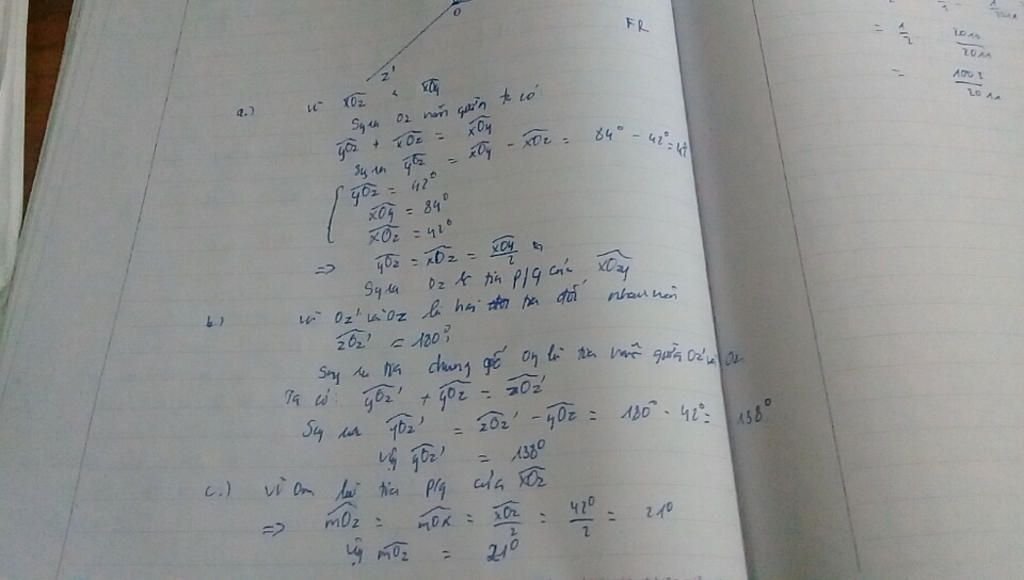 O
z'
FR
a.) vì xOz < xOy
Suy ra Oz nằm giữa ta có
yOz + xOz = xOy
Suy ra yOz = xOy - xOz = 84° - 42° = 42°
yOz = 42°
xOy = 84°
xOz = 42°
=> yOz = xOz = xOy/2
Suy ra Oz là tia p/g của xOy
b.) vì Oz' và Oz là hai tia đối nhau nên
zOz' = 180°
Suy ra tia chung gốc Oy là tia nằm giữa Oz' và Oz
Ta có: yOz' + yOz = zOz'
Suy ra yOz' = zOz' - yOz = 180° - 42° = 138°
vậy yOz' = 138°
c.) vì Om là tia p/g của xOz
=> mOz = mOx = xOz/2 = 42°/2 = 21°
vậy mOz = 21°
= 1/2
=